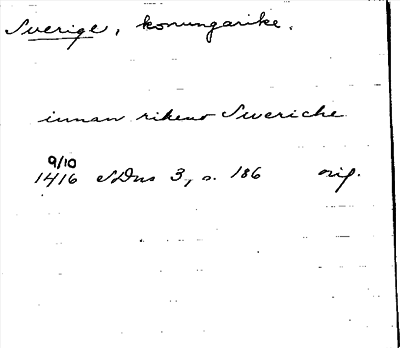 Sverige, konungarike.
innan rikeno Sweriche
9/10
1416 SDns 3, s. 186 orig.